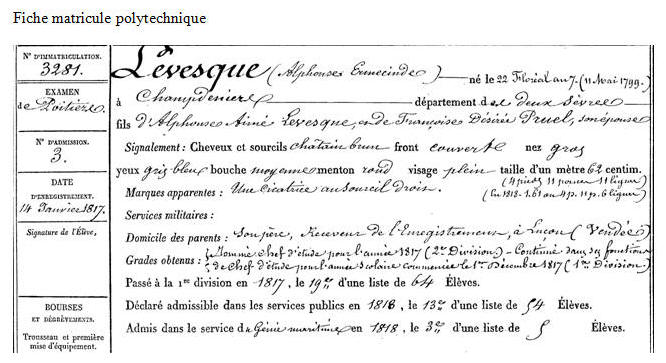 Fiche matricule polytechnique
N° D'IMMATRICULATION.
3281.
EXAMEN
de Poitiers
N° D'ADMISSION.
3.
DATE
D'ENREGISTREMENT.
14 Janvier 1817.
Signature de l'Élève,
BOURSES
ET DÉGRÈVEMENTS.
Trousseau et première
mise d'équipement.
Lévesque (Alphonse Ermecinde) né le 22 Floréal an 7. (11 Mai 1799.)
à Champdeniers département des deux Sèvres
fils d'Alphonse Aimé Levesque, et de Françoise Désirée Pruel, son épouse
Signalement: Cheveux et sourcils châtain brun front couvert nez gros
yeux gris bleu bouche moyenne menton rond visage plein taille d'un mètre 62 centim.
(4 pieds 11 pouces 11 lignes)
Marques apparentes: Une cicatrice au sourcil droit. (En 1818 - 1.61 au 4 p. 11 p. 6 lignes)
Services militaires:
Domicile des parents: Son père, Receveur de l'Enregistrement, à Luçon (Vendée)
Grades obtenus: Nommé chef d'étude pour l'année 1817 (2e Division) - Continué dans ses fonctions
de Chef d'étude pour l'année scolaire commencée le 1er Décembre 1817 (1re Division)
Passé à la 1re division en 1817, le 19e d'une liste de 64 Élèves.
Déclaré admissible dans les services publics en 1818, le 13e d'une liste de 54 Élèves.
Admis dans le service du Génie maritime en 1818, le 3e d'une liste de 5 Élèves.